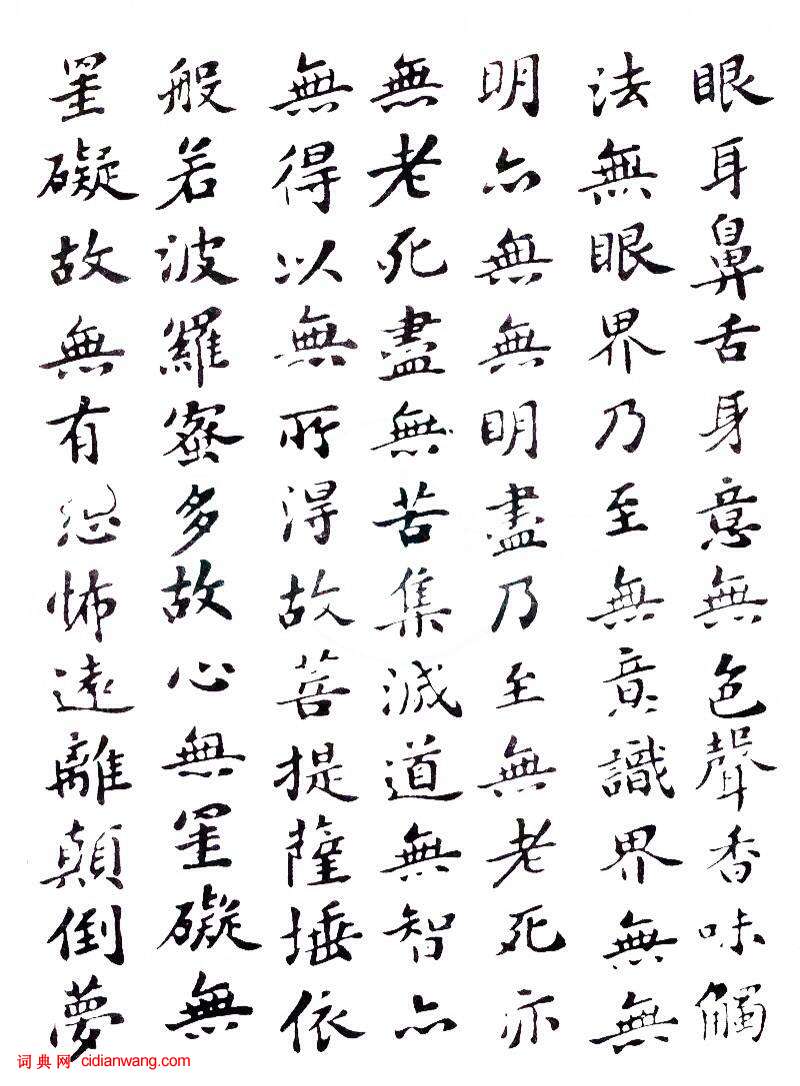 眼耳鼻舌身意無色聲香味觸
法無眼界乃至無意識界無無
明亦無無明盡乃至無老死亦
無老死盡無苦集滅道無智亦
無得以無所得故菩提薩埵依
般若波羅蜜多故心無罣礙無
罣礙故無有恐怖遠離顛倒夢
词典网 cidianwang.com